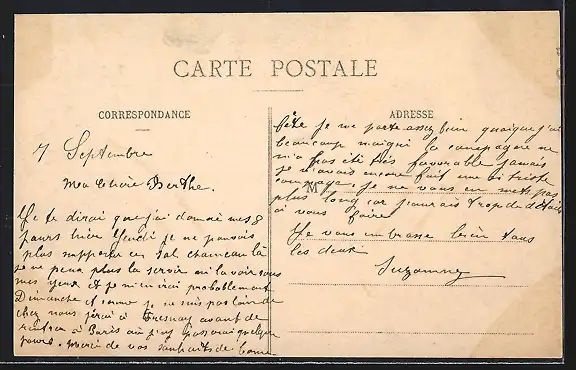 CARTE POSTALE
CORRESPONDANCE
7 Septembre
Ma chère Berthe.
Je te dirai que j'ai donné mes 8
jours hier Jeudi je ne pouvais
plus supporter ce sal chameau là
je ne peux plus la servir ni la voir sous
mes yeux et je m'en irai probablement
Dimanche et comme je ne suis pas loin de
chez nous j'irai à Fresnay avant de
rentrer à Paris où j'y passerai quelque
jours. merci de vos souhaits de bonne
ADRESSE
fête je me porte assez bien quoique j'ai
beaucoup maigri la campagne ne
m'a pas été très favorable jamais
je n'avais encore fait une si triste
campagne je ne vous en mets pas
M
plus long car j'aurais trop de détails
à vous faire
Je vous embrasse bien tous
les deux
Suzanne